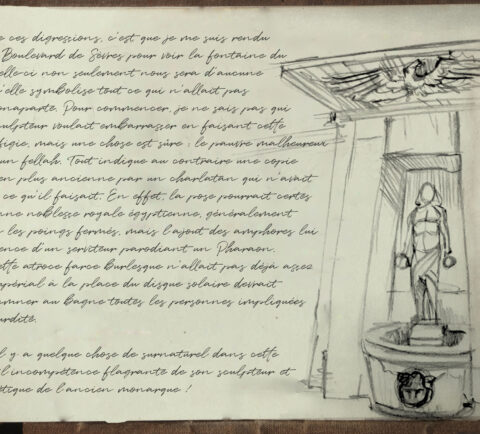 e ces digressions, c'est que je me suis rendu
Boulevard de Sèvres pour voir la fontaine du
elle-ci non seulement nous sera d'aucune
'elle symbolise tout ce qui n'allait pas
onaparte. Pour commencer, je ne sais pas qui
culpteur voulait embarrasser en faisant cette
figie, mais une chose est sûre : le pauvre malheureux
un fellah. Tout indique au contraire une copie
en plus ancienne par un charlatan qui n'avait
ce qu'il faisait. En effet, la pose pourrait certes
une noblesse royale égyptienne, généralement
les poings fermés, mais l'ajout des amphores lui
ence d'un serviteur parodiant un Pharaon.
ette atroce farce burlesque n'allait pas déjà assez
mpérial à la place du disque solaire devrait
amner au bagne toutes les personnes impliquées
urdité.
l y a quelque chose de surnaturel dans cette
l'incompétence flagrante de son sculpteur et
étique de l'ancien monarque !